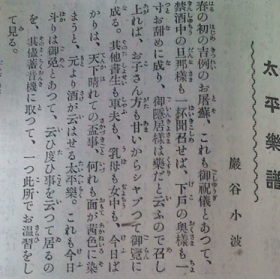 太平樂譜
巖谷小波
春の初の吉例のお屠蘇、これも御祝儀とあつて、
禁酒中の旦那様も一杯聞召せば、下戸の奥様も
寸お甜めに成り、御隱居様は藥だと云ふので召し
上れば、お子さん方も甘いからシャブつて御覽に
成る。其他書生も車夫も、乳母も女中も、今日ば
かりは、天下晴れての盃事、何れも面が茜色に染
まうと、元より酒が云はせる太平樂。これも今日
斗りは御免とあつて、云ひ度ひ事を云つて居るの
を、其儘蓄音機に取つて、一つ此所でお温習をし
て見る。